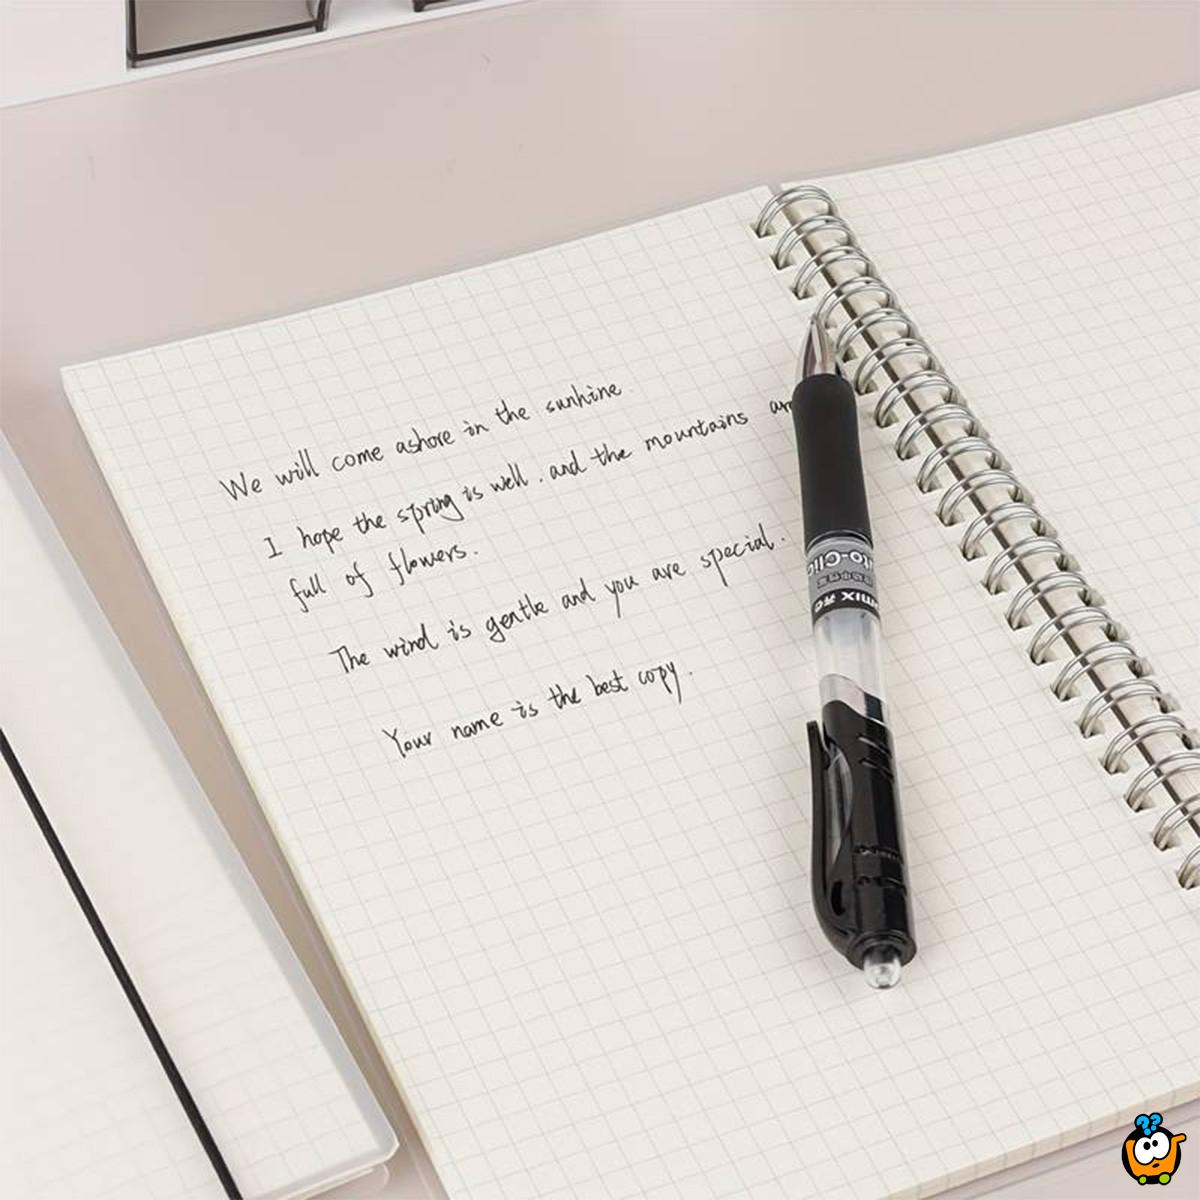 We will come ashore in the sunhine.
I hope the spring is well. and the mountains
full of flowers.
The wind is gentle and you are special.
Your name is the best copy.
??